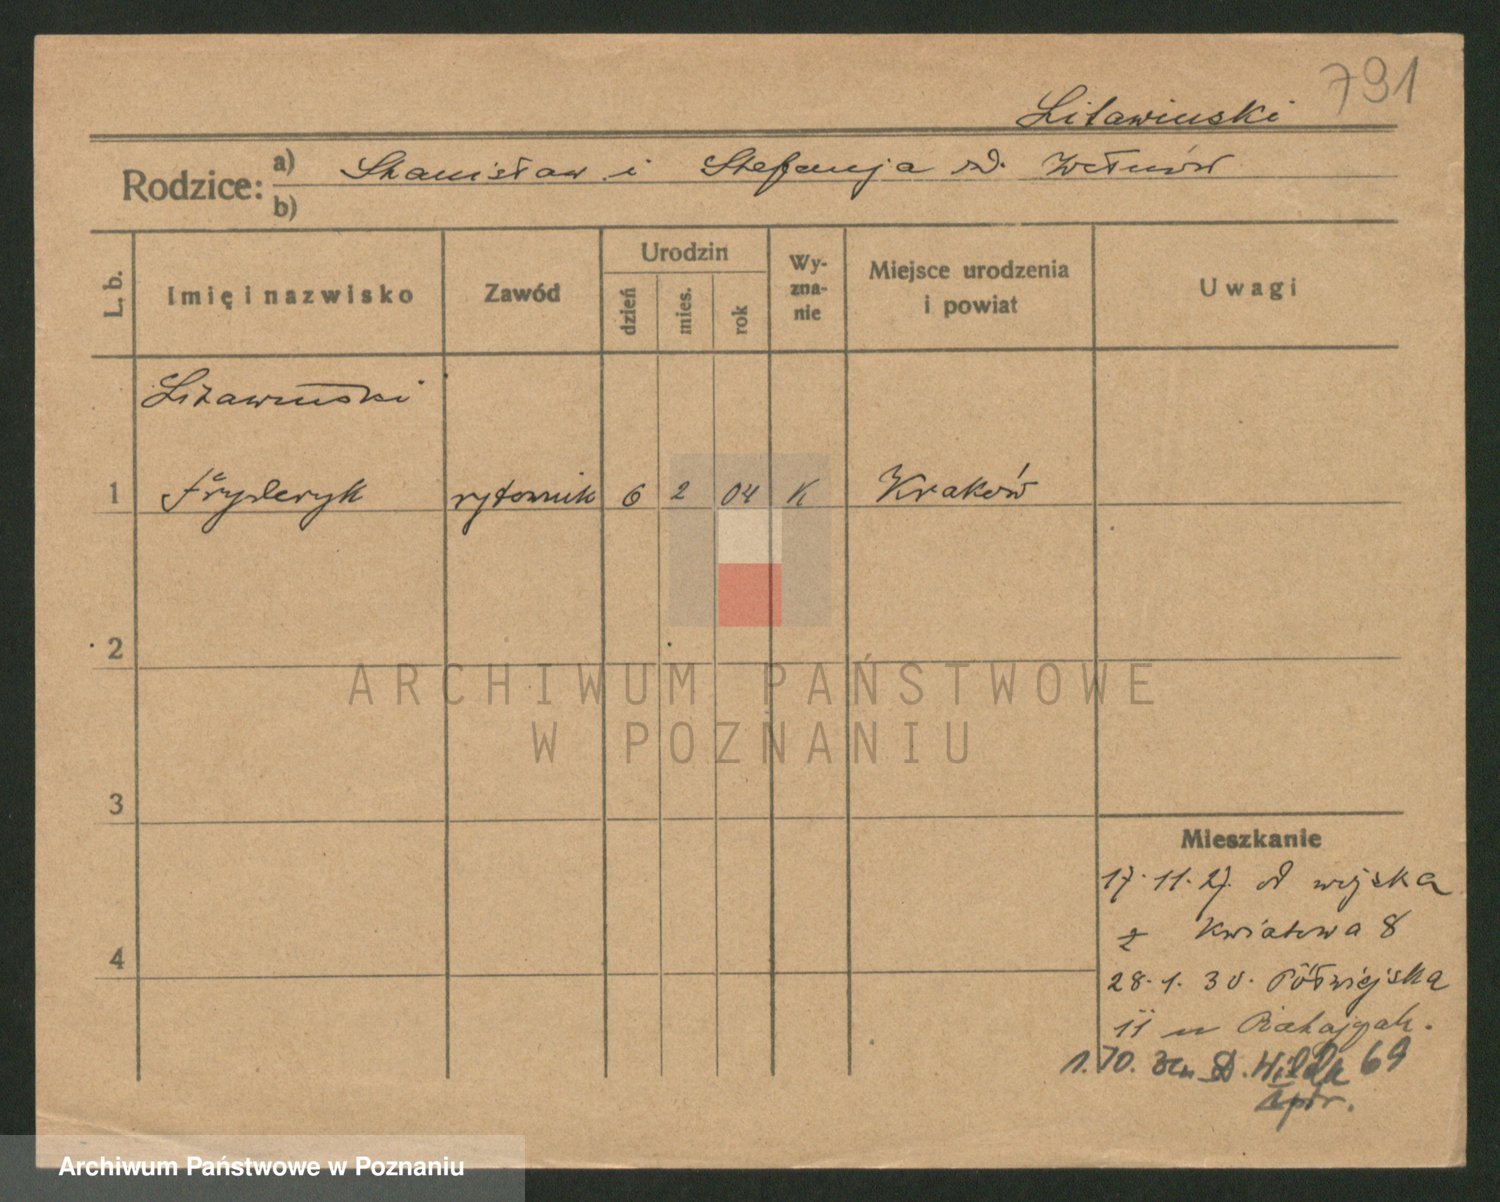 791
Litawinski
Rodzice: a) Stanisław i Stefanja
b)
L. b.
Imię i nazwisko
Zawód
Urodzin
dzień
mies.
rok
Wy-
zna-
nie
Miejsce urodzenia
i powiat
Uwagi
Litawinski
1 Fryderyk rytownik 6 2 04 K Kraków
2
3
4
Mieszkanie
17. 11. 27. od wojska
z Kwiatowa 8
28. 1. 30. Półwiejska
11 u
1. 10. 69
ARCHIWUM PAŃSTWOWE
W POZNANIU
Archiwum Państwowe w Poznaniu